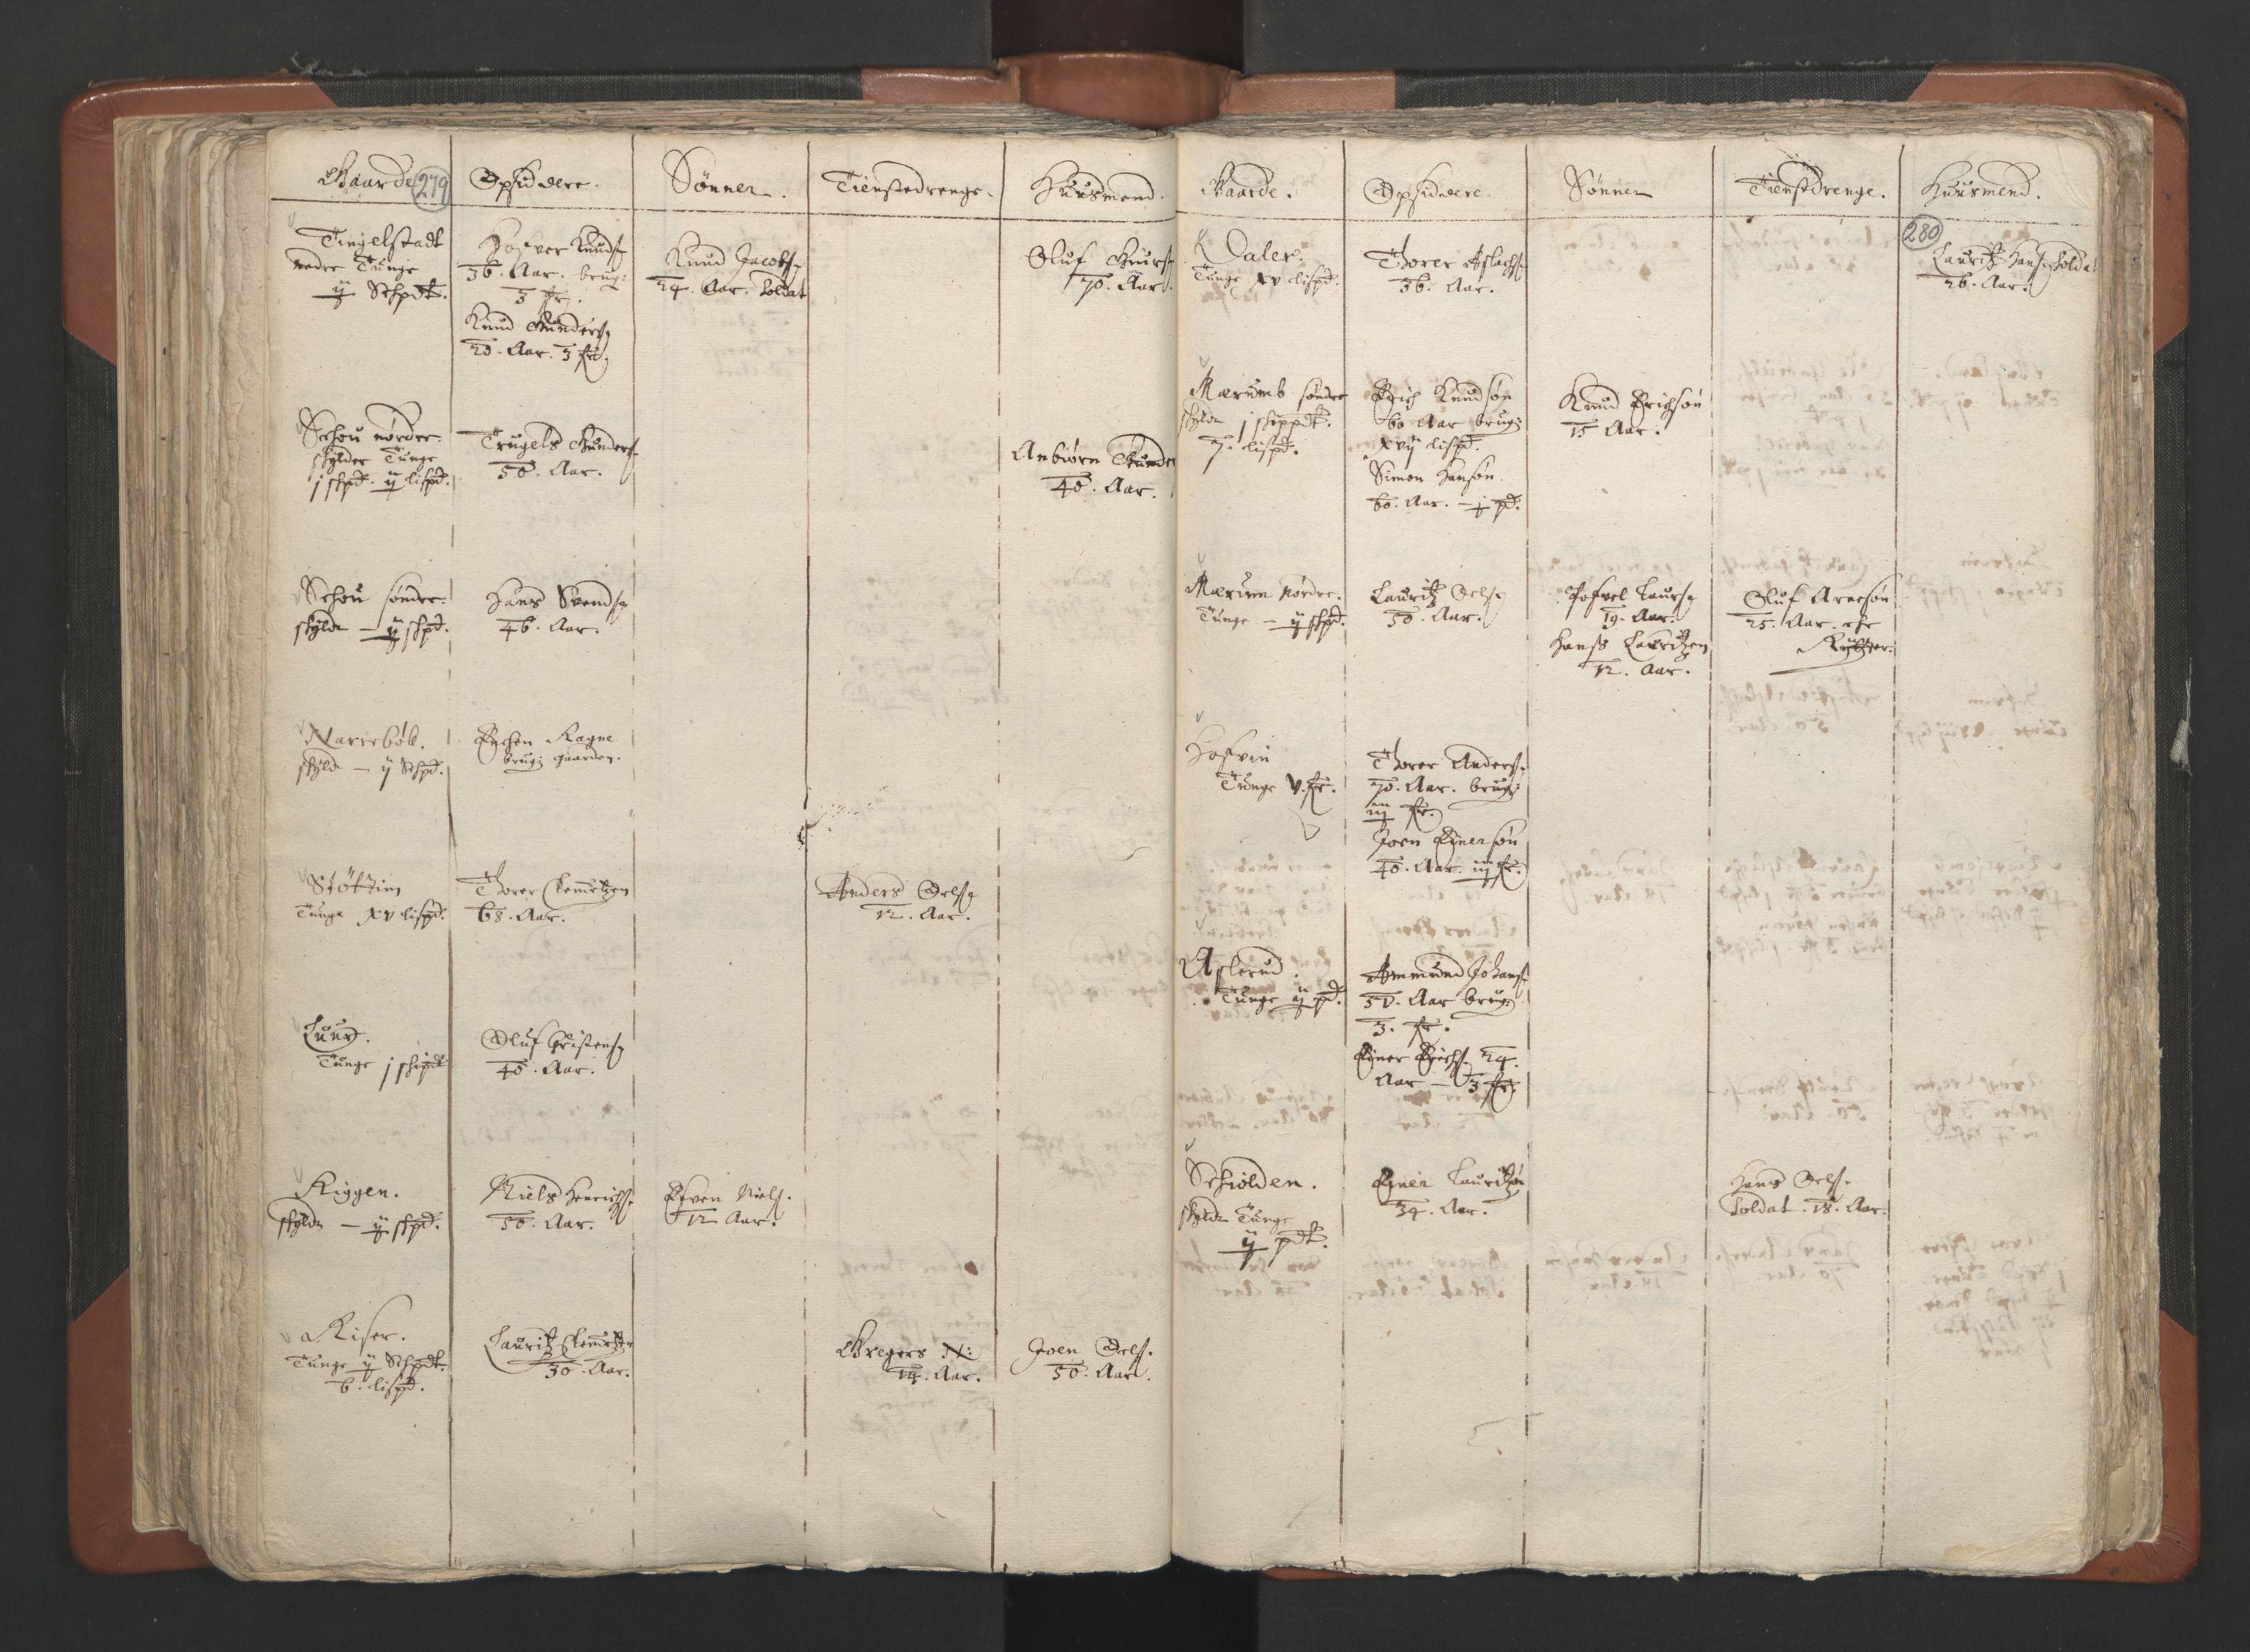 Gaarde 279
Opsiddere.
Sønner.
Tienstedrenge.
Huusmend.
Tingelstadt
nedre Tunge
ij Schpdt.
Knudß
36. Aar. brug:
3 fr.
Knud Gunderß
Aar. 3 fr.
Knud Jacobß
24. Aar. Soldat
Oluf Gurß
70. Aar.
Schou nørdre.
schylder Tunge
j schpd. ij lispd.
Trugels Gunderß
50. Aar.
Anbiørn
40. Aar.
Schou søndre.
schylder — ij schpd.
Hans Svendß
46. Aar.
Narrebøl.
schyld — ij Schpd.
Enchen Ragne
brug: gaarden.
Tunge xv lispd.
Torer Clemetzen
68. Aar.
Anders Oelß
12. Aar.
Tunge j schipdt
Oluf Christenß
40. Aar.
Riggen.
schylde — ij schpd.
Niels Henrichß.
50. Aar.
Efven Nielß.
12 Aar.
Riser.
Tunge ij Schpdt.
6. lispd.
Lauritz Clemetzen
30. Aar.
Gregers N:
14. Aar.
Joen Oelß.
50. Aar.
Gaarde.
Opsiddere.
Sønner
Tienstdrenge.
Huusmend.
280
Daler.
Tunge xv lispd.
Torer Aslachß.
36. Aar.
Lauritz Hanß Soldat
26. Aar.
Mærumb søndre
schylde j schippdt.
7. lispd.
Erich Knudsøn
60 Aar brug:
xvij lispd.
Simon Hansøn.
60. Aar. — j pd.
Knud Erichsøn
15 Aar.
Mærum nørdre.
Tunge — ij schpd.
Lauritz Oelß.
50. Aar.
Pofvel Laurß
19. Aar.
Hanß Lauritzen
12. Aar.
Oluf Arnesøn
25. Aar. ehr
Rytter.
Hofvin
Tunge v. fr.
Torer Anderß.
70. Aar. brug:
iij fr.
Joen Ejnersøn
40. Aar. iij fr.
Aslerud.
Tunge ij pd.
Ammund Johanß.
Aar brug:
3. fr.
Ejner Erichß. 24.
Aar — 3 fr.
Schiolden.
schylde Tunge
ij pdt.
Ejner Lauritzøn
34. Aar.
Hans Oelß.
Soldat. 18. Aar.